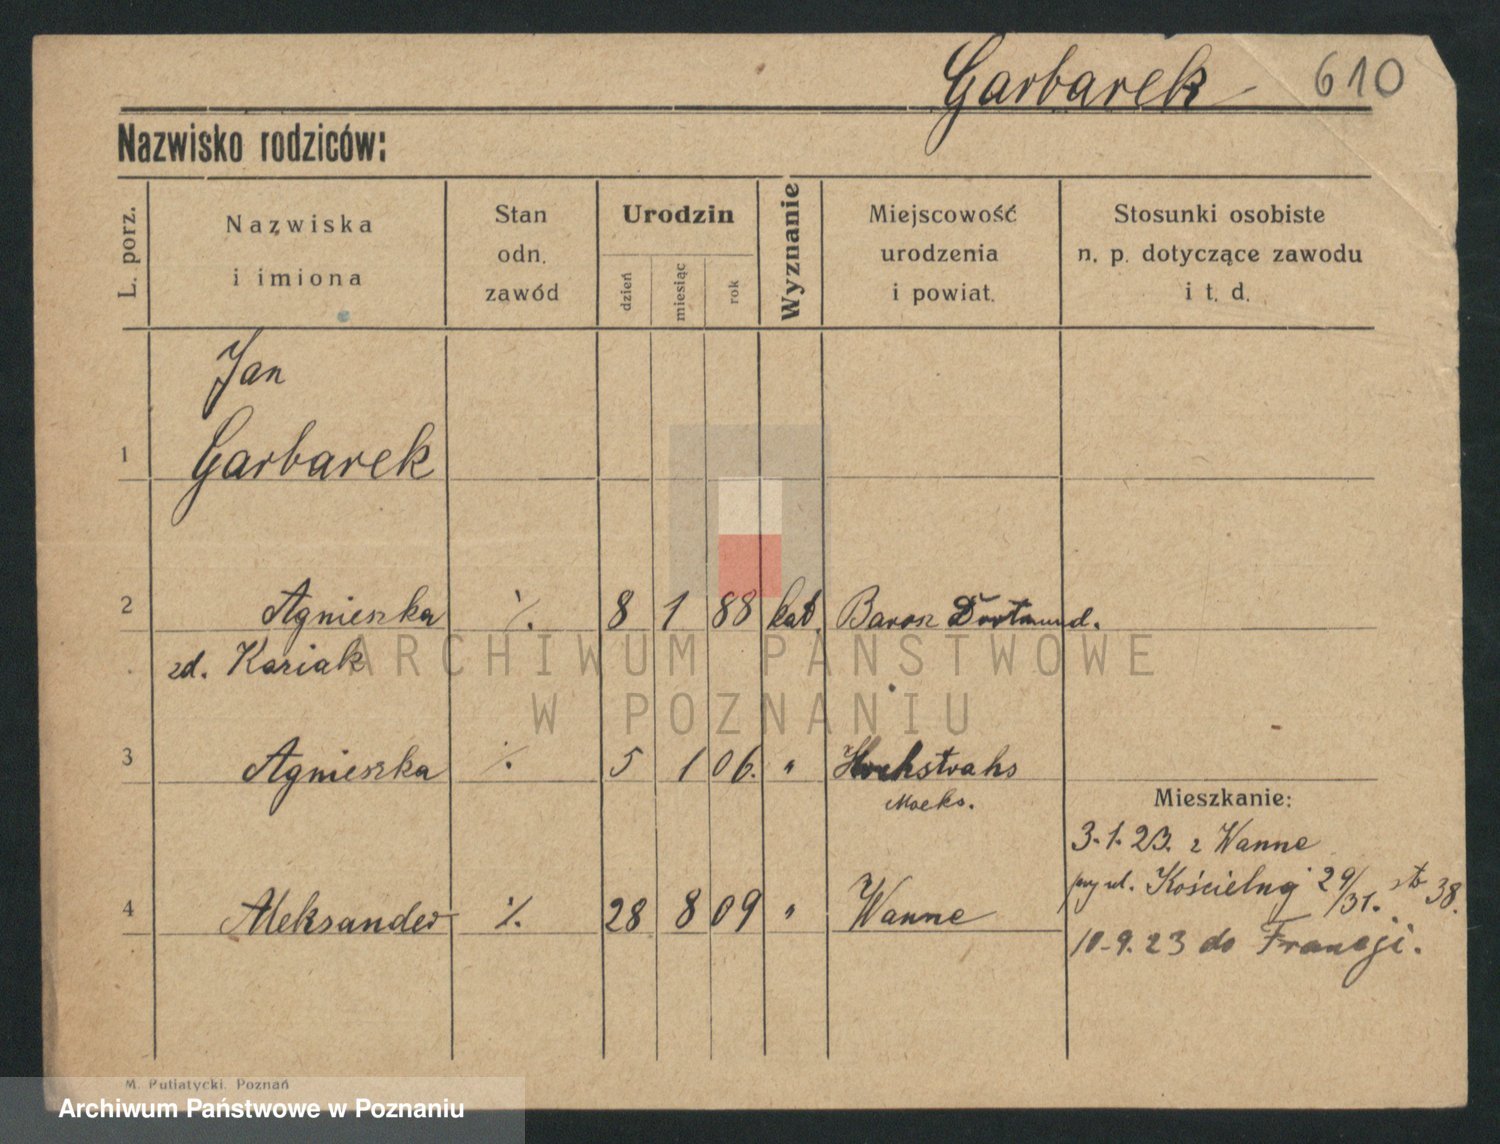 Garbarek 610
Nazwisko rodziców:
L. porz.
Nazwiska
i imiona
Stan
odn.
zawód
Urodzin
dzień miesiąc rok
Wyznanie
Miejscowość
urodzenia
i powiat.
Stosunki osobiste
n. p. dotyczące zawodu
i t. d.
Jan
1 Garbarek
2 Agnieszka ./. 8 1 88 kat. Barosz Dortmund.
zd. Kaziak
ARCHIWUM PAŃSTWOWE
W POZNANIU
3 Agnieszka ./. 5 1 06. "
Mieszkanie:
3.1.23. z Wanne
ul. Kościelnej 29/31. 38.
4 Aleksander ./. 28 8 09 " Wanne
10-9.23 do Francji.
M. Putiatycki. Poznań
Archiwum Państwowe w Poznaniu